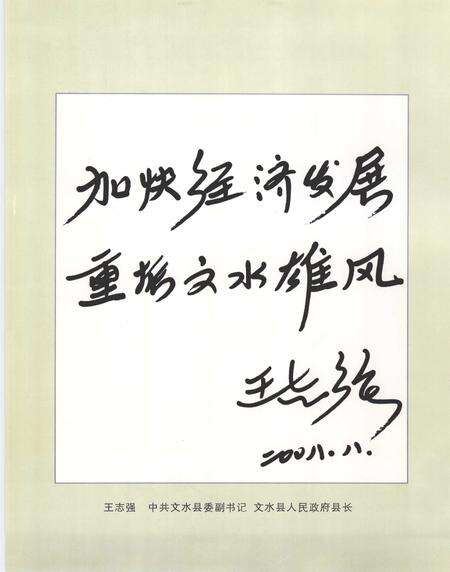 加快经济发展
重振文水雄风
王志强
二〇〇八.八.
王志强 中共文水县委副书记 文水县人民政府县长